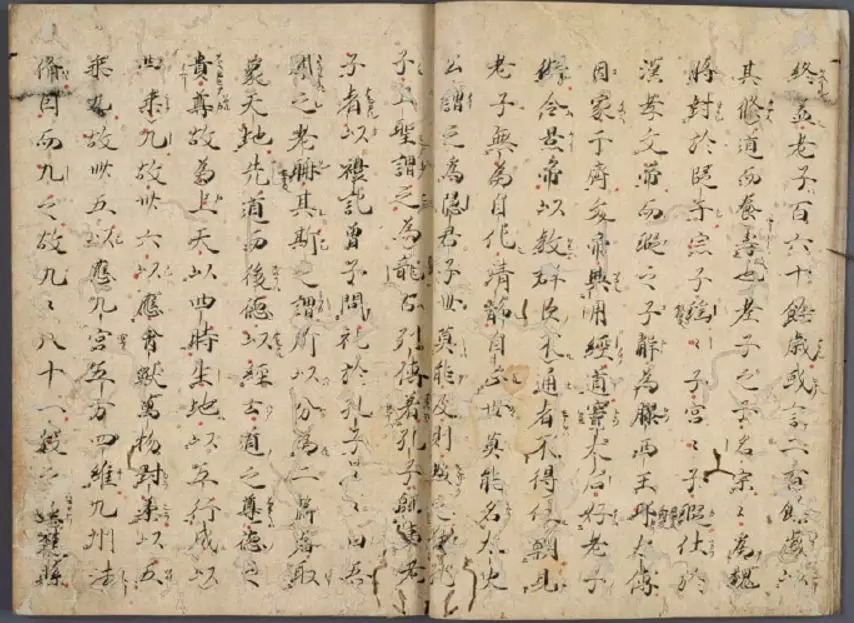 終蓋老子百六十餘歳或言二百餘歳以
其修道而養壽也老子之子名宗〻為魏
將封於段干宗子瑶〻子宮〻子瑕仕於
漢孝文帝而瑕之子解為膠西王卬太傅
因家于齊帝興用經道竇太后好老子
術令景帝以教群臣不通者不得仕朝
老子無為自化清静自正世莫能名太史
公謂之為隱君子世莫能及則
子上聖謂之為龍列傳者孔子師
子者以禮記曽子問礼於孔子曰吾
聞之老聃其斯之謂所以分為二篇者取
象天地先道而後德以經云道之尊德之
貴尊故為上天以四時生地以五行成以
四乗九故卅六以應禽獸萬物對第以五
乗九故卌五以應九宮五方四維九州法
備因而九之故九〻八十一數之